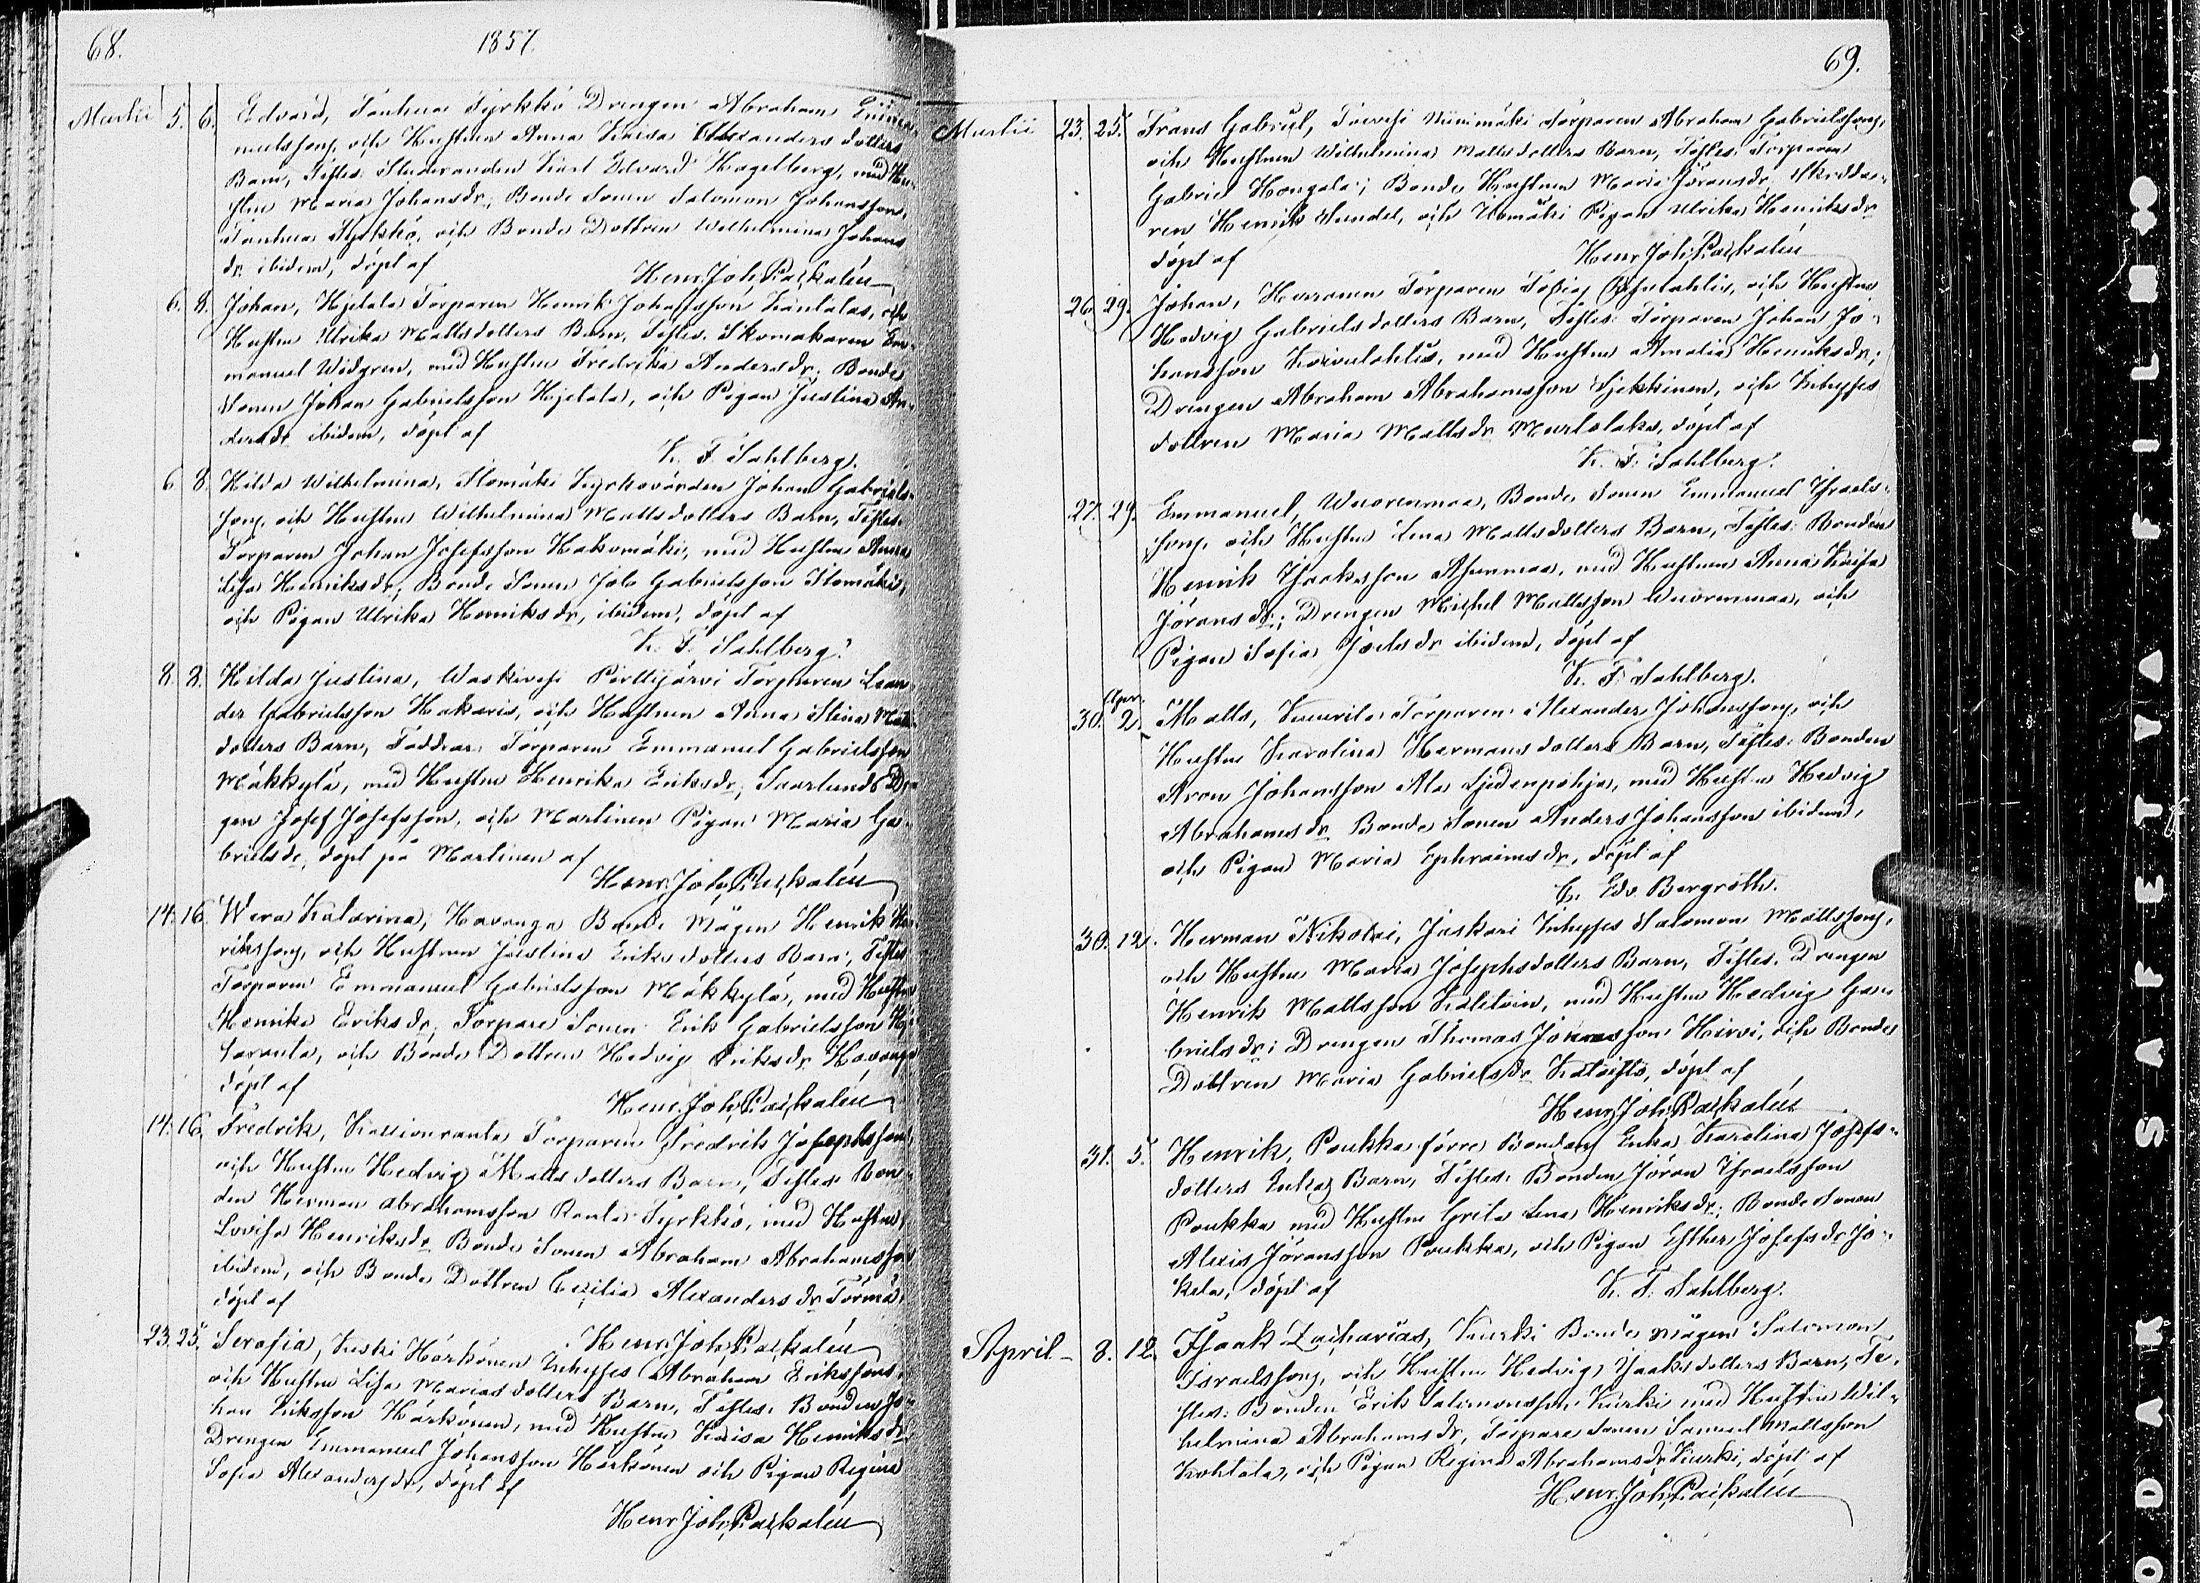 68.
1857.
Martii 5. 6. Edvard, Tanhua Tyrkkö Drengen Abraham Emma-
nuelssons, och Hustrun Anna Kaisa Alexanders dotters
Barn, Testes: Studeranden Karl Edvard Hagelberg, med Hu-
strun Maria Johansdr, Bonde Sonen Salomon Johansson,
Tanhua Tyrkkö, och Bonde Dottren Wilhelmina Johans
dr ibidem, döpt af
Henr. Joh. Raschalén
6. 8. Johan, Hjetala Torparen Henrik Johansson Kantalas, och
Hustrun Ulrika Mattsdotters Barn, Testes. Skomakaren Em-
manuel Widgren, med Hustrun Fredrika Andersdr; Bonde
Sonen Johan Gabrielsson Hjetala, och Pigan Justina An-
dersdr ibidem, döpt af
K. F. Sahlberg.
6 8. Hilda Wilhelmina, Ilomäki Kyrkovärden Johan Gabriels-
sons, och Hustrun Wilhelmina Mattsdotters Barn, Testes.
Torparen Johan Josefsson Kakomäki, med Hustrun Anna
Lisa Henriksdr; Bonde Sonen Job Gabrielsson Ilomäki,
och Pigan Ulrika Henriksdr, ibidem, döpt af
K. F. Sahlberg.
8. 8. Hilda Justina, Waskivesi Perttijärvi Torparen Lean-
der Gabrielsson Kakaris, och Hustrun Anna Stina Matts
dotters Barn, Faddrar: Torparen Emmanuel Gabrielsson
Mäkkylä, med Hustrun Henrika Eriksdr; Saarlunds Dr-
gen Josef Josefsson, och Martinen Pigan Maria Ga-
brielsdr, döpt på Martinen af
Henr. Joh. Raschalén
14. 16. Wera Katarina, Havanga Bonde Mågen Henrik Hen-
rikssons, och Hustrun Justina Eriks dotters Barn, Testes
Torparen Emmanuel Gabrielsson Mäkkylä, med Hustrun
Henrika Eriksdr; Torpare Sonen Erik Gabrielsson
och Bonde Dottren Hedvig Eriksdr Havanga
döpt af
Henr. Joh. Raschalén
14. 16. Fredrik, Torparen Fredrik Josephssons
och Hustrun Hedvig Matts dotters Barn, Testes Bon-
den Herman Abrahamsson Ranta Tyrkkö, med Hustrun
Lovisa Henriksdr Bonde Sonen Abraham Abrahamsson
ibidem, och Bonde Dottren Cecilia Alexandersdr Törmä,
döpt af
Henr. Joh. Raschalén
23. 25. Serafia, Keski Härkönen Inhyses Abraham Erikssons,
och Hustrun Lisa Mariasdotters Barn, Testes. Bonden Jo-
han Eriksson Härkönen, med Hustrun Kaisa Henriksdr
Drengen Emmanuel Johansson Härkönen och Pigan Regina
Sofia Alexandersdr, döpt af
Henr. Joh. Raschalén
69.
Martii 23. 25. Frans Gabriel, Toivesi Niinimäki Torparen Abraham Gabrielssons,
och Hustrun Wilhelmina Matts dotters Barn, Testes: Torparen
Gabriel Hangala; Bonde Hustrun Maria Göransdr, Skredda-
ren Henrik Sundel, och Ilomäki Pigan Ulrika Henriksdr
döpt af
Henr. Joh. Raschalén
26. 29. Johan, Herranen Torparen Tobias och Hustrun
Hedvig Gabrielsdotters Barn, Testes: Torparen Johan Jo-
hansson Koivulahti, med Hustrun Amalia Henriksdr;
Drengen Abraham Abrahamsson och Inhyses
dottren Maria Mattsdr döpt af
K. F. Sahlberg.
27. 29. Emmanuel, Wuorenmaa, Bonde Sonen Emmanuel Israels-
sons, och Hustrun Lena Mattsdotters Barn, Testes: Bonden
Henrik Isaksson Asunmaa, med Hustrun Anna Kaisa
Göransdr; Drengen Michel Mattsson Wuorenmaa, och
Pigan Sofia Joelsdr ibidem, döpt af
K. F. Sahlberg.
30. Apr. 2. Matts, Torparen Alexander Johanssons, och
Hustrun Karolina Hermansdotters Barn, Testes: Bonden
Aron Johansson Ala Sjödenpohja, med Hustrun Hedvig
Abrahamsdr Bonde Sonen Anders Johansson ibidem,
och Pigan Maria Ephraimsdr, döpt af
C. Edv. Bergroth.
30. 12. Herman Nikolai, Jaskari Inhyses Salomon Mattssons,
och Hustrun Maria Josephsdotters Barn, Testes. Drengen
Henrik Mattsson med Hustrun Hedvig Ga-
brielsdr; Drengen Thomas Johansson Hirvi, och Bonde
Dottren Maria Gabrielsdr döpt af
Henr. Joh. Raschalén
31. 5. Henrik, Poukka förre Bondens Enka Karolina Josefs-
dotters Enkas Barn, Testes: Bonden Göran Israelsson
Poukka med Hustrun Greta Lena Henriksdr; Bonde Sonen
Alexis Göransson Poukka, och Pigan Esther Josefsdr Jo-
kela, döpt af
K. F. Sahlberg.
April 8. 12. Isaak Zacharias, Kurki Bonde Mågen Salomon
Israelssons, och Hustrun Hedvig Isaaksdotters Barn, Te-
stes: Bonden Erik Salomonsson Kurki med Hustrun Wil-
helmina Abrahamsdr, Torpare Sonen Samuel Mattsson
Kohtala, och Pigan Regina Abrahamsdr Kurki, döpt af
Henr. Joh. Raschalén
ODAK SAFETY FILM